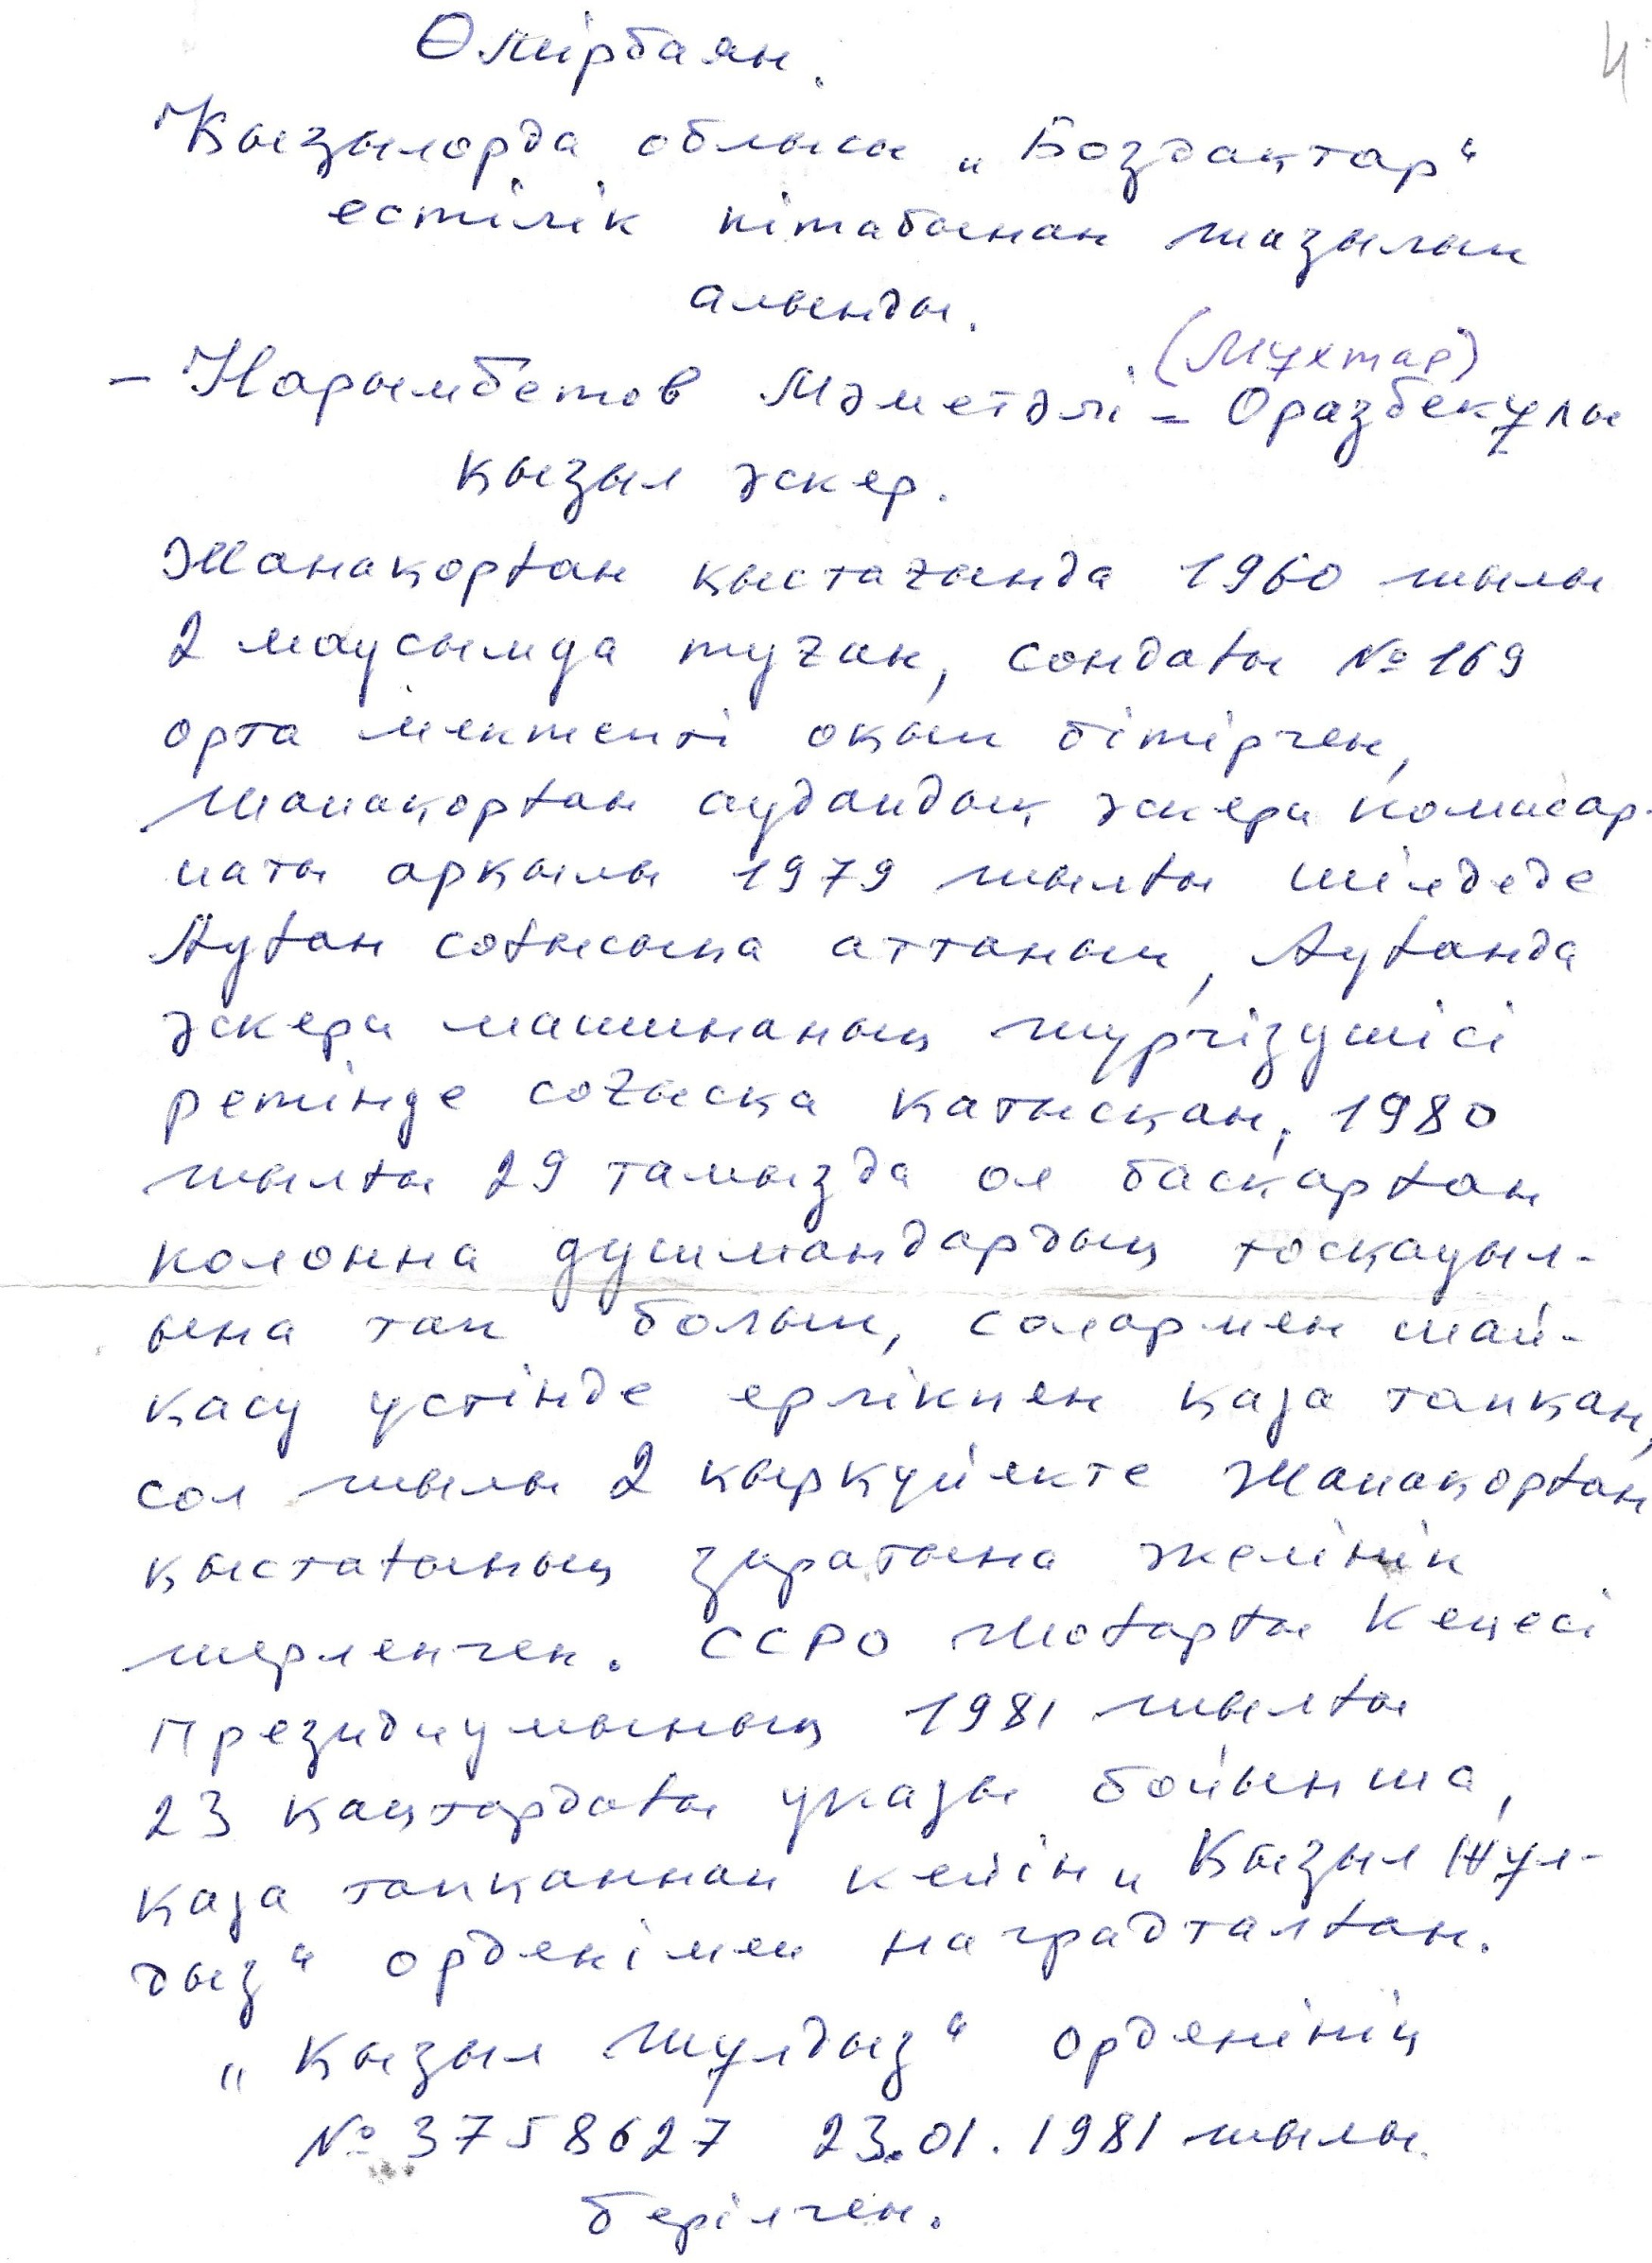 Өмірбаян.
4
Қызылорда облысы „Боздақтар“
естілік кітабынан жазылып
алынды.
(Мұхтар)
– Нарымбетов Мәметәлі – Оразбекұлы
қызыл әскер.
Жанақорған қыстағында 1960 жылы
2 маусымда туған, сондағы № 169
орта мектепті оқып бітірген,
Жанақорған аудандық әскери комисар-
иаты арқылы 1979 жылғы шілдеде
Ауған соғысына аттанып, Ауғанда
әскери машинаның жүргізушісі
ретінде соғысқа қатысқан, 1980
жылғы 29 тамызда ол басқарған
колонна душмандардың тосқауыл-
ына тап болып, солармен шай-
қасу үстінде ерлікпен қаза тапқан,
сол жылы 2 қыркүйекте Жанақорған
қыстағының зиратына жөлініп
жерленген. ССРО Жоғарғы Кеңесі
Президиумының 1981 жылғы
23 қаңтардағы указы бойынша,
қаза тапқаннан кейін „Қызыл Жұл-
дыз“ орденімен наградталған.
„Қызыл Жұлдыз“ орденінің
№ 3758627 23.01.1981 жылы.
берілген.